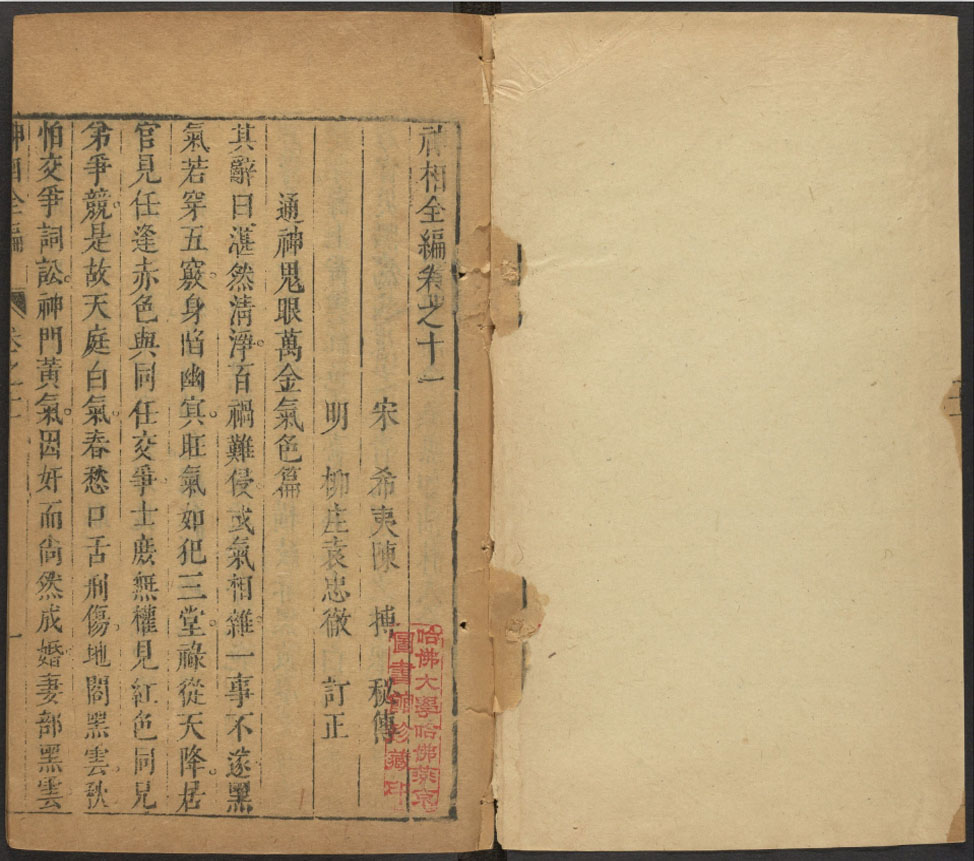 神相全編卷之十一
宋　希夷陳　摶　秘傳
明　柳庄袁忠徹　訂正
通神鬼眼萬金氣色篇
其辭曰湛然清淨百禍難侵或氣相雜一事不遂黑
氣若穿五竅身陷幽冥旺氣如犯三堂祿從天降居
官見任逢赤色與同任交爭士庶無權見紅色同兄
弟爭競是故天庭白氣春愁口舌刑傷地閣黑雲秋
怕交爭詞訟神門黃氣因奸而尚然成婚妻部黑雲
神相全編　卷之十一　一
哈佛大學哈佛燕京
圖書館珍藏印